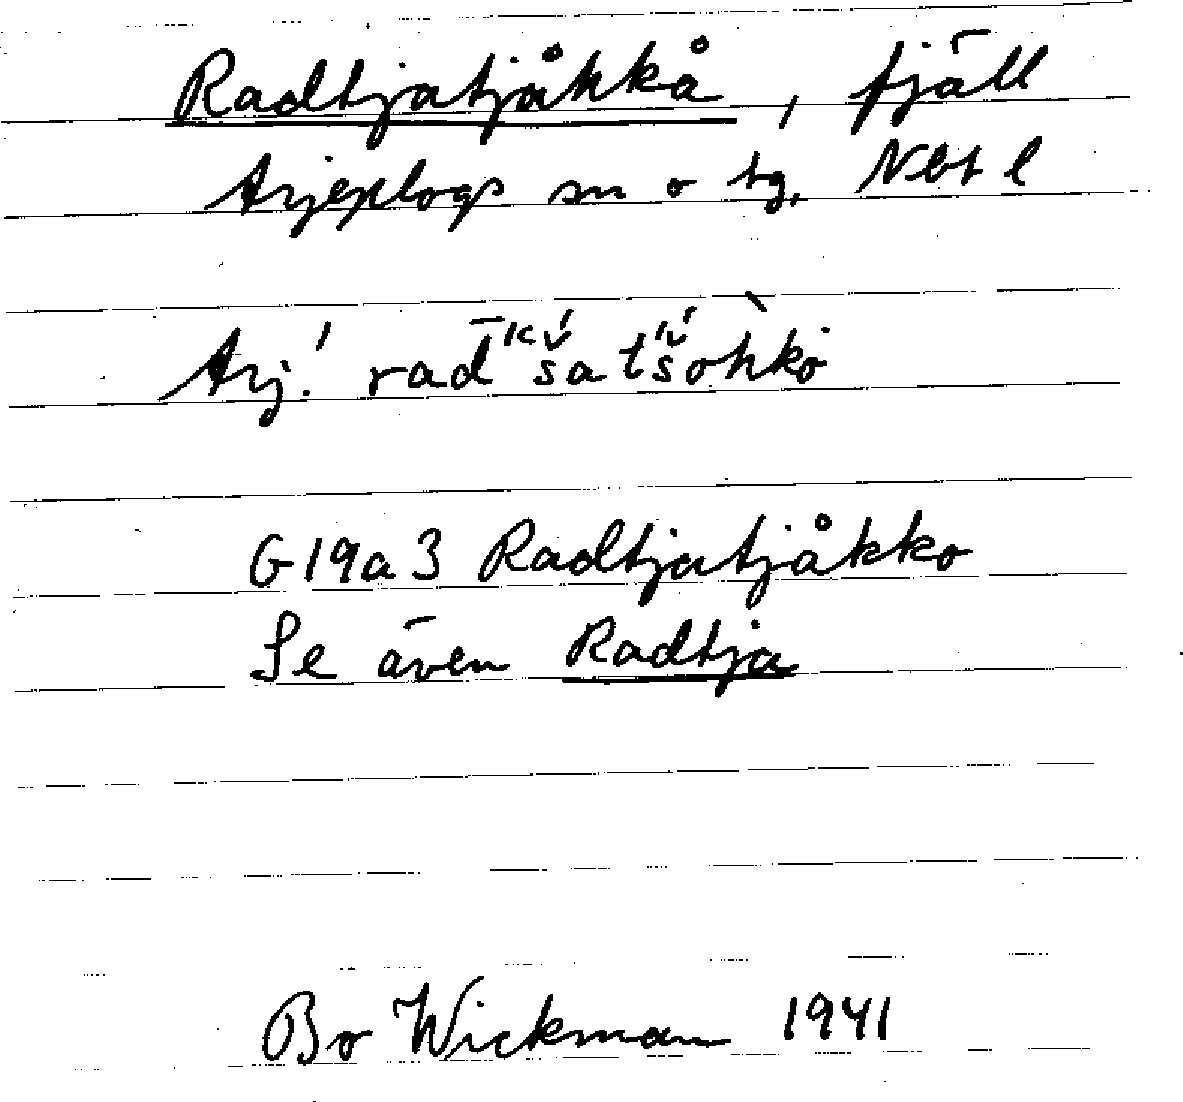 Radtjatjåkkå, fjäll
Arjeplogs sn o tg, Nbt l
Arj.
G19a3 Radtjatjåkko
Se även Radtja
Bo Wickman 1941